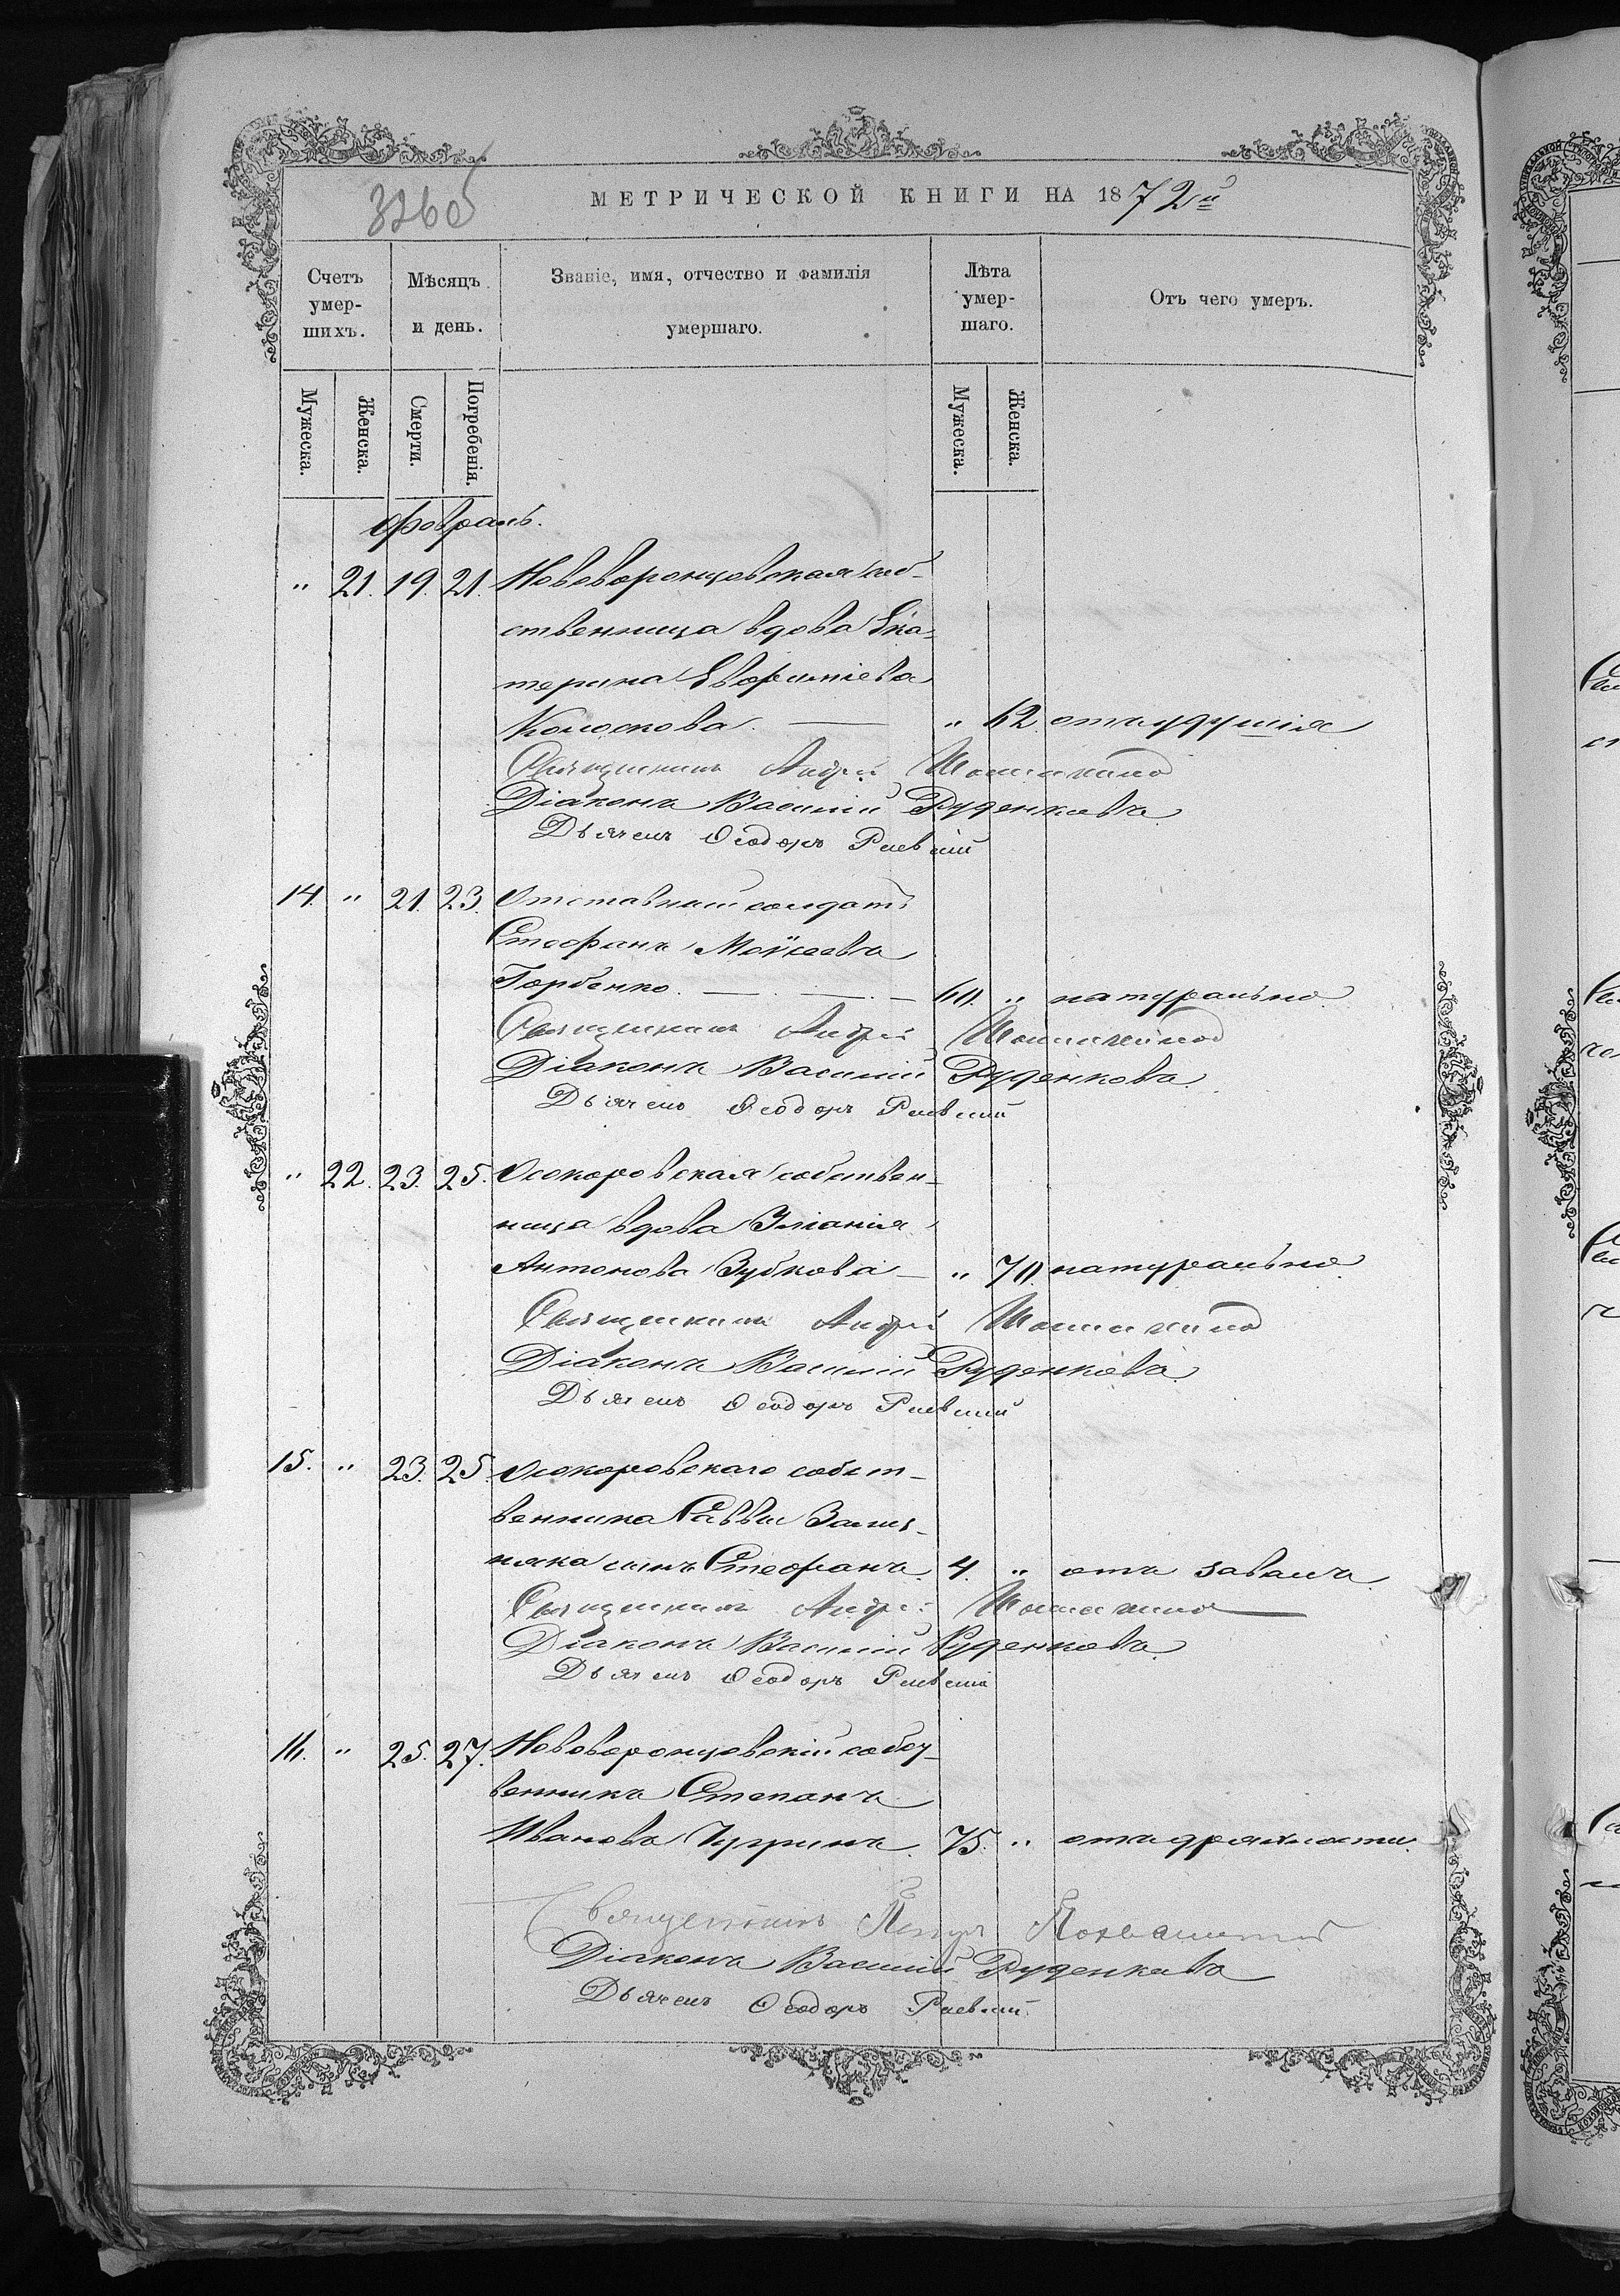 326об
МЕТРИЧЕСКОЙ КНИГИ НА 1872й
Счетъ умер-шихъ.
Мѣсяцъ и день.
Званіе, имя, отчество и фамилія умершаго.
Лѣта умер-шаго.
Отъ чего умеръ.
Мужеска.
Женска.
Смерти.
Погребенія.
Мужеска.
Женска.
Февраль.
" 21. 19. 21. Нововоронцовская соб-
ственница вдова Ека-
терина Евфиміева
Колоскова. — " 62 отъ удушія
Священникъ Андрей
Діаконъ Василій Руденковъ
Дьячекъ Ѳеодоръ Раевскій
14. " 21. 23. Отставный солдатъ
Стефанъ Моѵсеевъ
Горбенко. — 60. " натурально.
Священникъ Андрей
Діаконъ Василій Руденковъ.
Дьячекъ Ѳеодоръ Раевскій
" 22. 23. 25. Осокоровская собствен-
ница вдова
Антонова Зубкова — " 70. натурально.
Священникъ Андрей
Діаконъ Василій Руденковъ.
Дьячекъ Ѳеодоръ Раевскій
15. " 23. 25. Осокоровскаго собст-
венника Саввы Зализ-
няка сынъ Стефанъ. 4. " отъ завала.
Священникъ Андрей
Діаконъ Василій Руденковъ.
Дьячекъ Ѳеодоръ Раевскій
16. " 25. 27. Нововоронцовскій собст-
венникъ Степанъ
Ивановъ 75. " отъ дряхлости.
Священникъ Петръ
Діаконъ Василій Руденковъ
Дьячекъ Ѳеодоръ Раевскій.